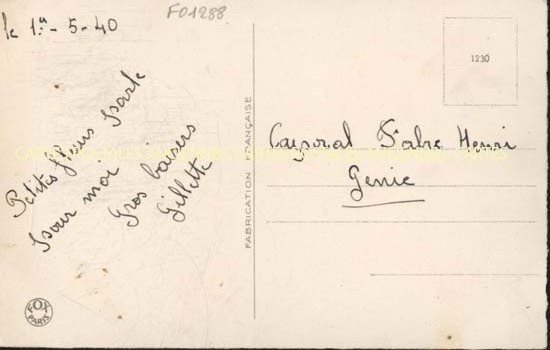 le 1er - 5 - 40
F01288
Petites fleurs parle
pour moi
Gros baisers
Gillette
FABRICATION FRANÇAISE
1230
Caporal Fabre Henri
Genie
FOX
PARIS